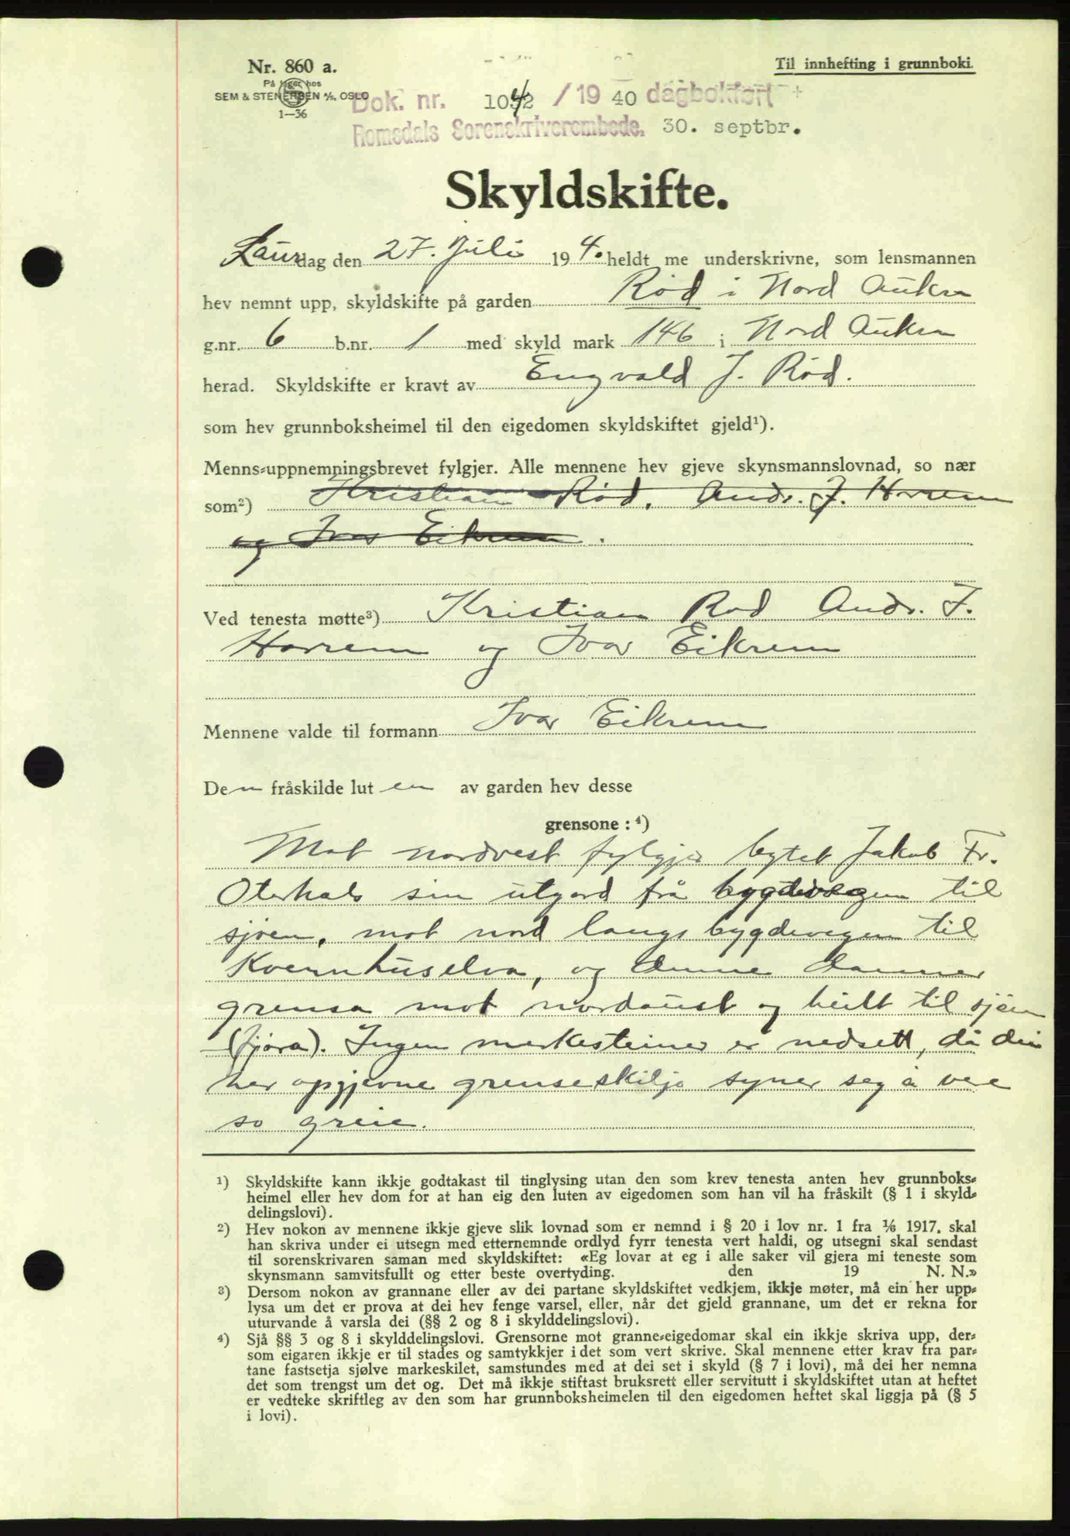 Nr. 860 a.
Til innhefting i grunnboki.
På lager hos
SEM & STENERSEN A/S, OSLO
1—36
Dok. nr. 1042 / 19 40 dagbokført
Romsdals Sorenskriverembede. 30. septbr.
Skyldskifte.
Laurdag den 27. Juli 194 0 heldt me underskrivne, som lensmannen
hev nemnt upp, skyldskifte på garden Rød i Nord Aukra
g.nr. 6 b.nr. 1 med skyld mark 146 i Nord Aukra
herad. Skyldskifte er kravt av Engvald J. Rød.
som hev grunnboksheimel til den eigedomen skyldskiftet gjeld¹).
Menns-uppnemningsbrevet fylgjer. Alle mennene hev gjeve skynsmannslovnad, so nær
som²) Kristian Rød, Andr. J. Horrem
og Ivar Eikrem.
Ved tenesta møtte³) Kristian Rød Andr. J.
Horrem og Ivar Eikrem
Mennene valde til formann Ivar Eikrem
Den fråskilde luten av garden hev desse
grensone : ⁴)
Mot nordvest fylgjer bytet Jakob Fr.
Oterhals sin utgard frå bygdevegen til
sjøen, mot nord langs bygdevegen til
Kvernhuselva, og denne danner
grensa mot nordaust og heilt til sjøen
(fjøra). Ingen merkesteiner er nedsett, då dei
her opgjevne grenseskilje syner seg å vere
so greie.
¹) Skyldskifte kann ikkje godtakast til tinglysing utan den som krev tenesta anten hev grunnboks-
heimel eller hev dom for at han eig den luten av eigedomen som han vil ha fråskilt (§ 1 i skyld-
delingslovi).
²) Hev nokon av mennene ikkje gjeve slik lovnad som er nemnd i § 20 i lov nr. 1 fra 1/6 1917, skal
han skriva under ei utsegn med etternemnde ordlyd fyrr tenesta vert haldi, og utsegni skal sendast
til sorenskrivaren saman med skyldskiftet: «Eg lovar at eg i alle saker vil gjera mi teneste som
skynsmann samvitsfullt og etter beste overtyding. den 19 N. N.»
³) Dersom nokon av grannane eller av dei partane skyldskiftet vedkjem, ikkje møter, må ein her upp-
lysa um det er prova at dei hev fenge varsel, eller, når det gjeld grannane, um det er rekna for
uturvande å varsla dei (§§ 2 og 8 i skylddelingslovi).
⁴) Sjå §§ 3 og 8 i skylddelingslovi. Grensorne mot granne-eigedomar skal ein ikkje skriva upp, der-
som eigaren ikkje er til stades og samtykkjer i det som vert skrive. Skal mennene etter krav fra par-
tane fastsetja sjølve markeskilet, samstundes med at dei set i skyld (§ 7 i lovi), må dei her nemna
det som trengst um det og. Det må ikkje stiftast bruksrett eller servitutt i skyldskiftet utan at heftet
er vedteke skriftleg av den som har grunnboksheimelen til den eigedomen heftet skal liggja på (§ 5
i lovi).